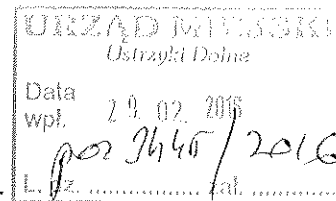 URZĄD MIEJSKI
Ustrzyki Dolne
Data
wpł. 29. 02. 2016
poz /2016
L. dz. .................. zał. ..................